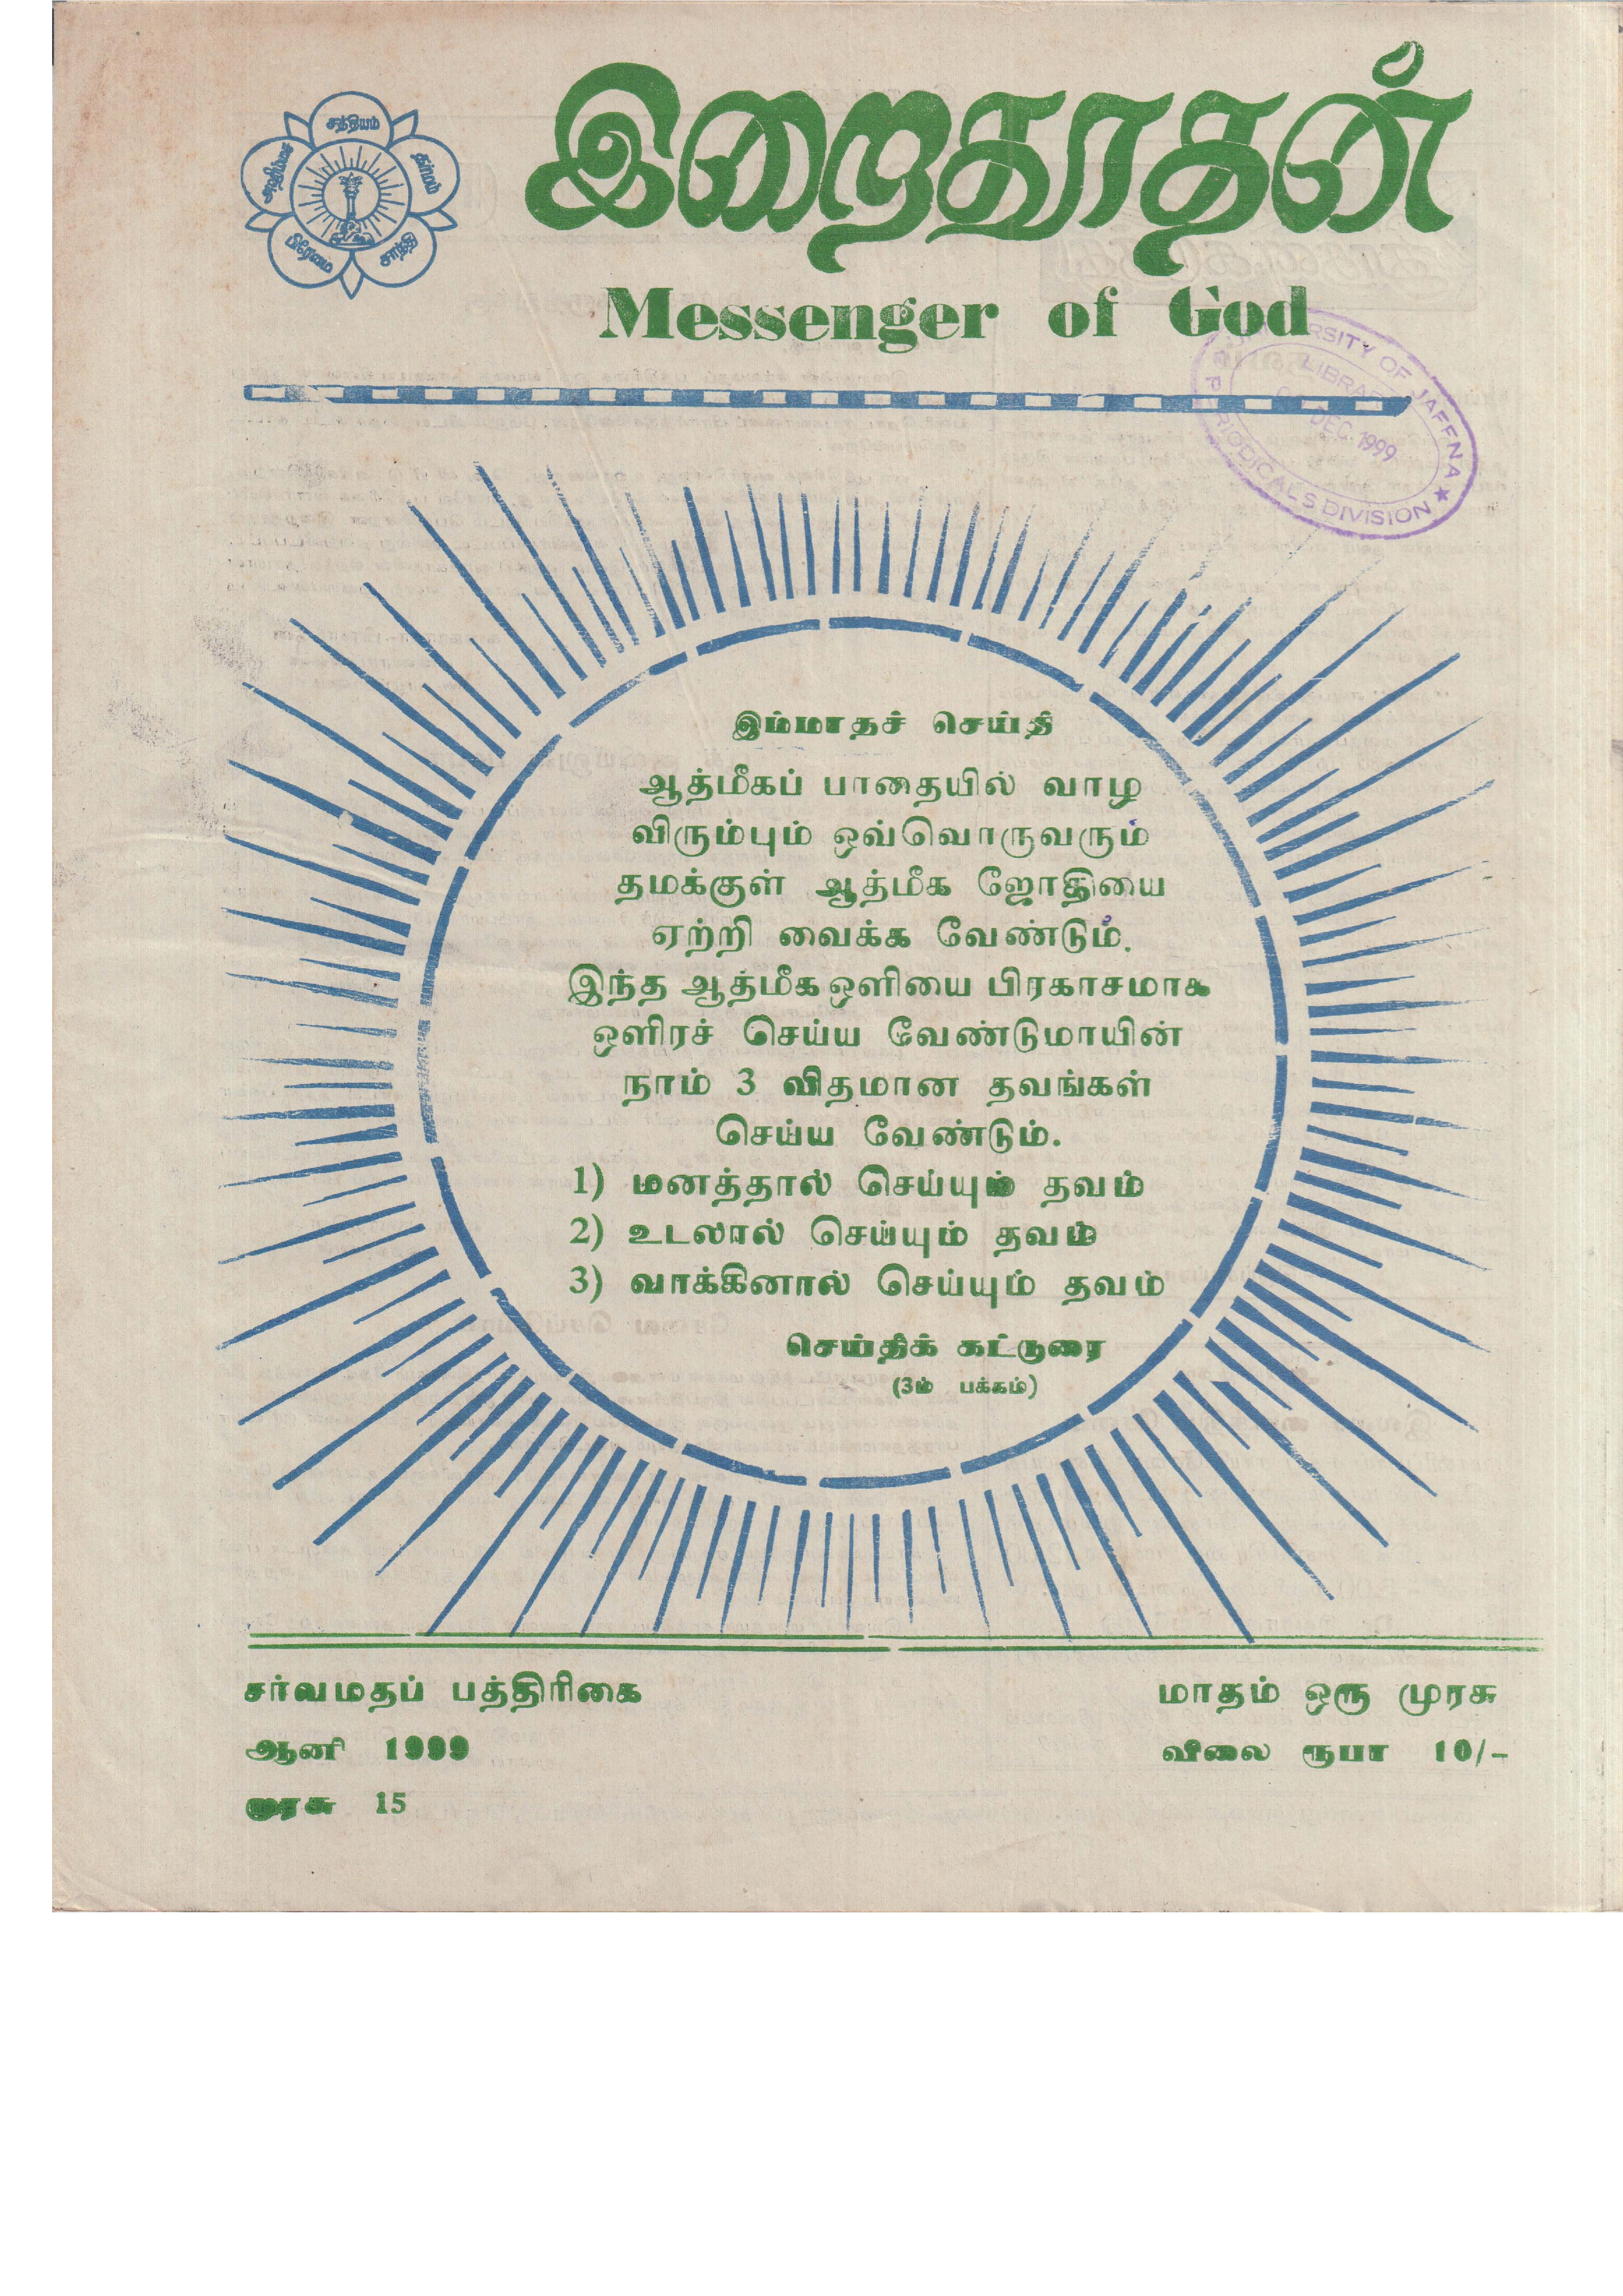 சத்தியம்
தர்மம்
சாந்தி
பிரேமை
அஹிம்சை
இறைதூதன்
Messenger of God
UNIVERSITY OF JAFFNA
LIBRARY
DEC 1999
PERIODICALS DIVISION
இம்மாதச் செய்தி
ஆத்மீகப் பாதையில் வாழ
விரும்பும் ஒவ்வொருவரும்
தமக்குள் ஆத்மீக ஜோதியை
ஏற்றி வைக்க வேண்டும்.
இந்த ஆத்மீக ஒளியை பிரகாசமாக
ஒளிரச் செய்ய வேண்டுமாயின்
நாம் 3 விதமான தவங்கள்
செய்ய வேண்டும்.
1) மனத்தால் செய்யும் தவம்
2) உடலால் செய்யும் தவம்
3) வாக்கினால் செய்யும் தவம்
செய்திக் கட்டுரை
(3ம் பக்கம்)
சர்வமதப் பத்திரிகை
மாதம் ஒரு முரசு
ஆனி 1999
விலை ரூபா 10/-
முரசு 15